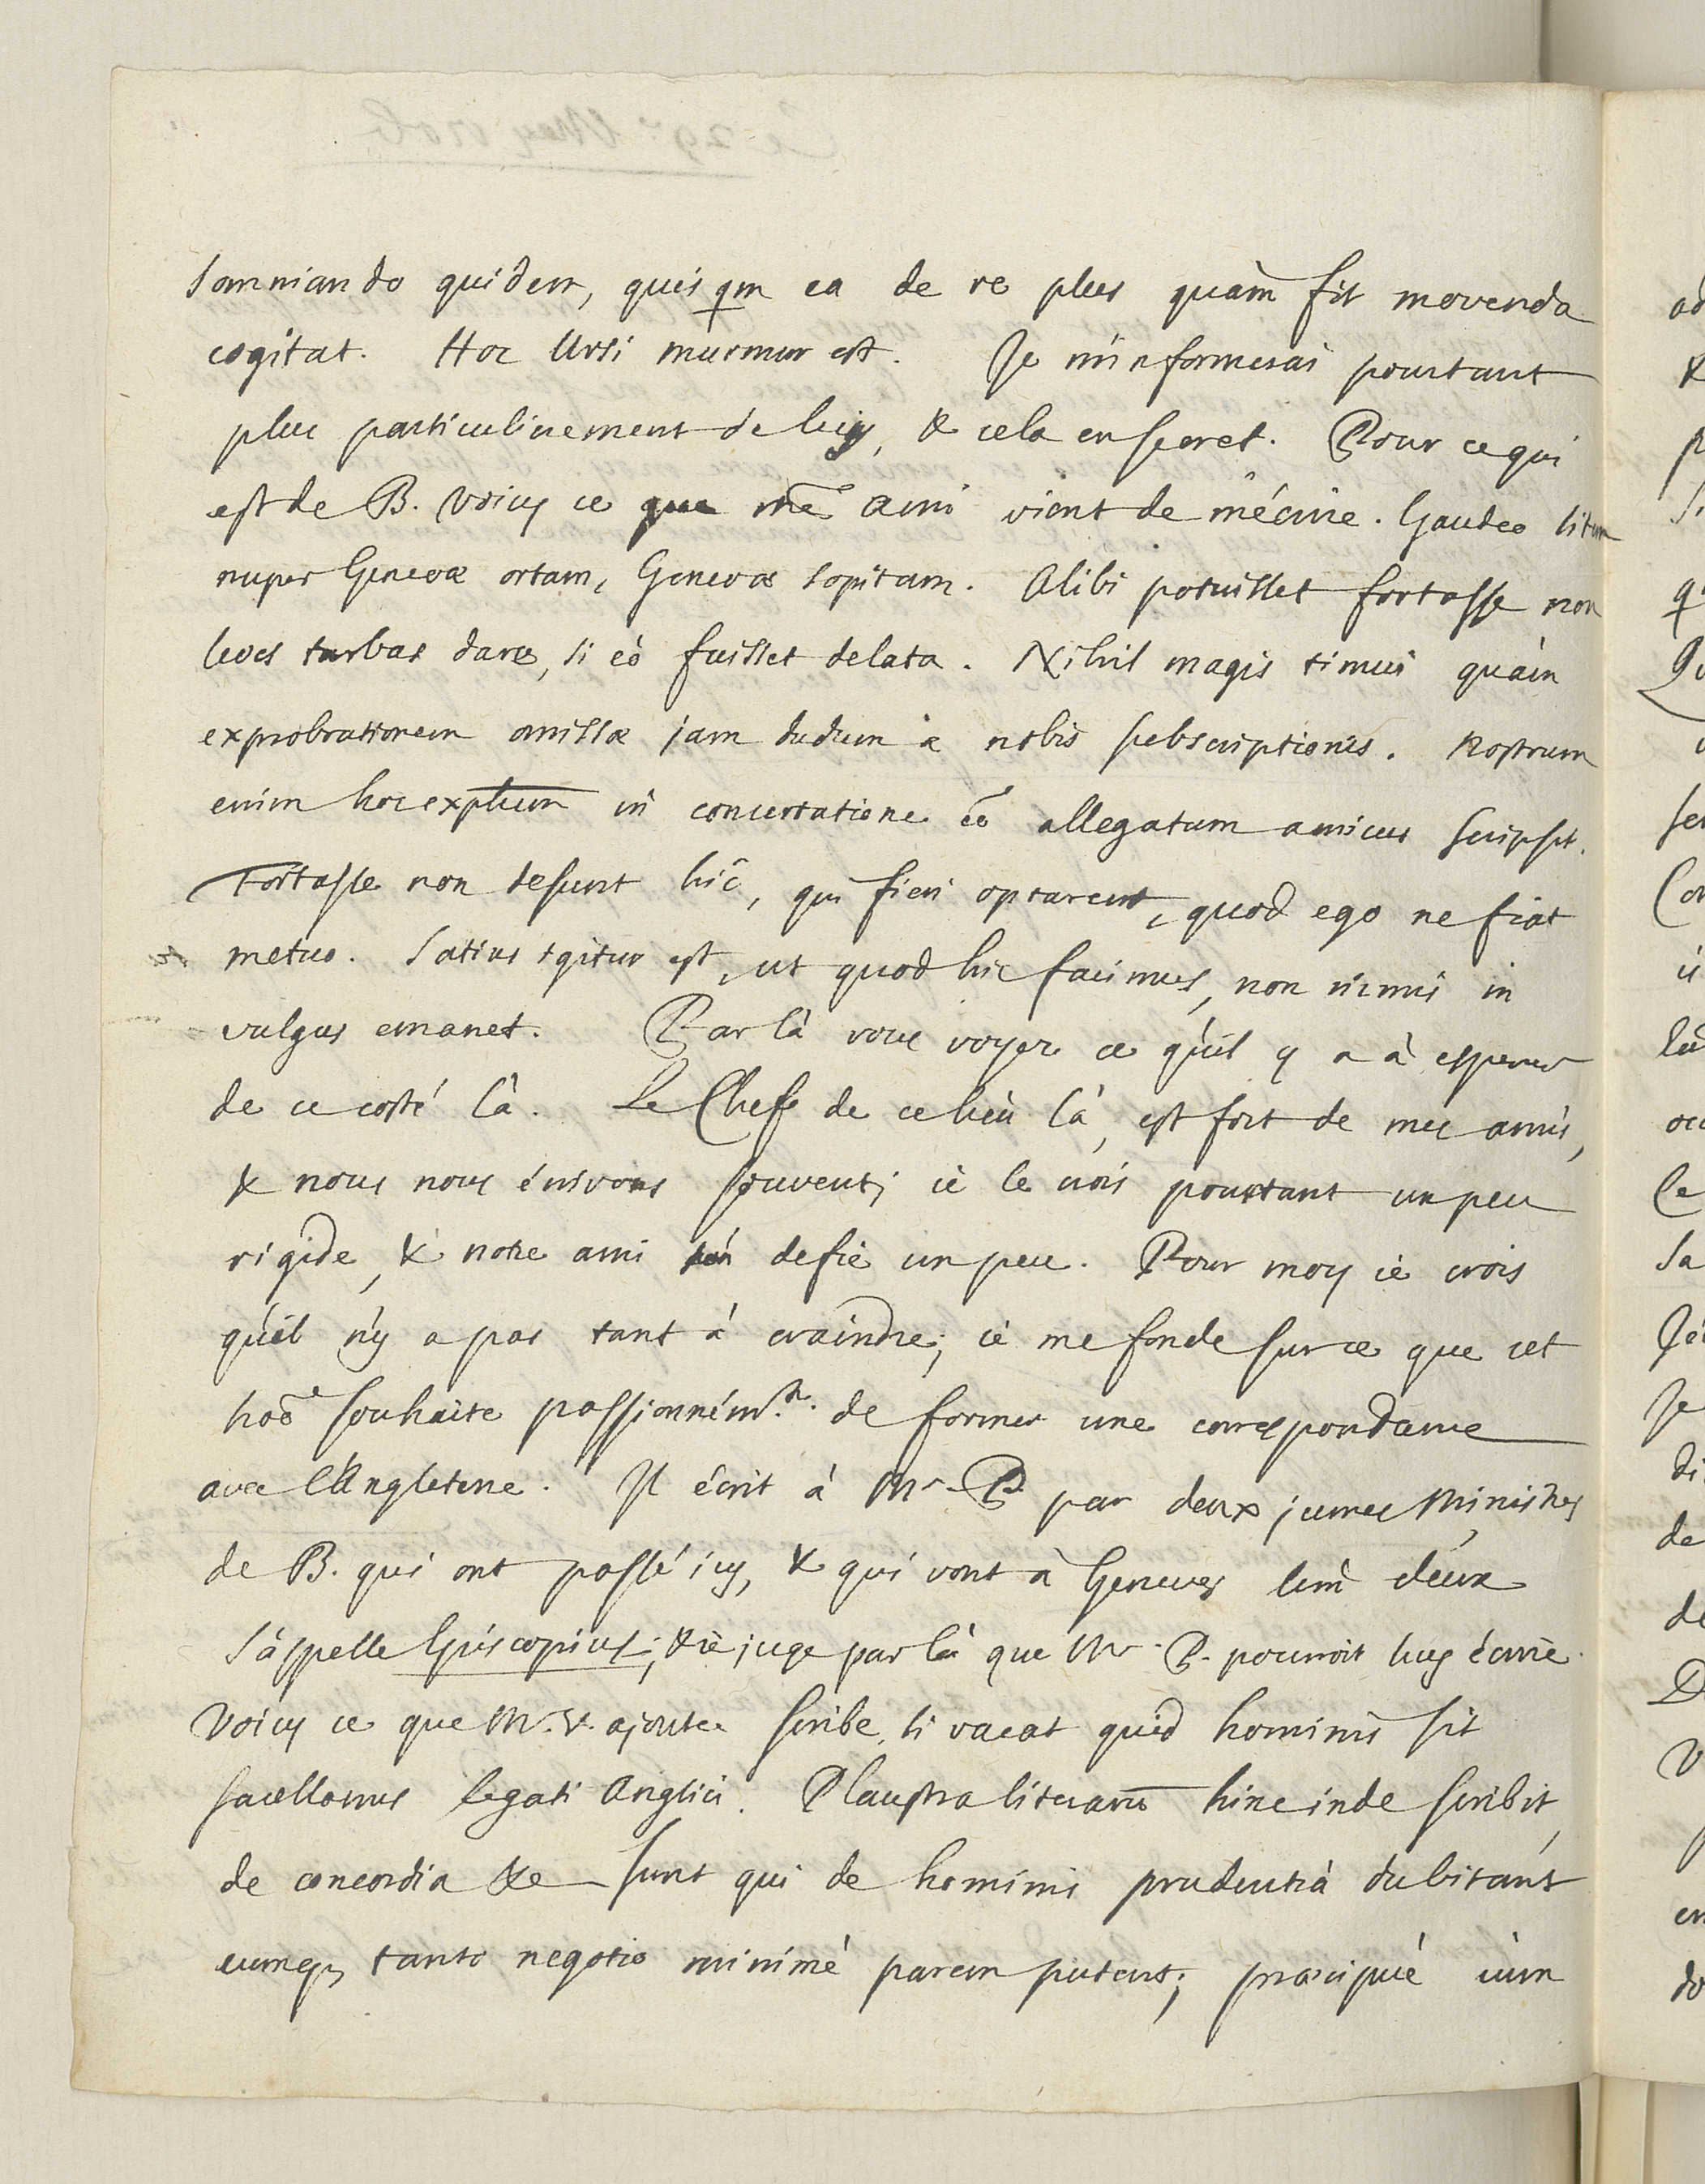 somniando quidem, quisqm ea de re plus quàm sit movenda
cogitat. Hoc Ursi murmur est. Je m'informerai pourtant
plus particulierement de luy, & cela en secret. Pour ce qui
est de B. voicy ce que mõ ami vient de m'écrire. Gaudeo litem
nuper Genevæ ortam, Genevæ sopitam. Alibi potuisset fortasse non
leves turbas dare, si eò fuisset delata. Nihil magis timui quàm
exprobrationem omissæ jam dudum à nobis subscriptionis. Nostrum
enim hoc explum in concertatione eẽ allegatum amicus scripsit.
Fortasse non desunt hîc, qui fieri optarent, quod ego ne fiat
metuo. Satius igitur est, ut quod hic facimus, non nimis in
vulgus emanet. Par là vous voyez ce qu'il y a à esperer
de ce costé là. Le Chef de ce lieu là, est fort de mes amis,
& nous nous écrivons souvent; ie le crois pourtant un peu
rigide, & notre ami s'en defie un peu. Pour moy ie crois
qu'il n'y a pas tant à craindre; ie me fonde sur ce que cet
hoẽ souhaite passionnémt. de former une correspondance
avec l'Angleterre. Il écrit à Mr. P. par deux jeunes Ministres
de B. qui ont passé icy, & qui vont à Geneve, l'un d'eux
s'appelle Episcopius; & ie juge par là que Mr. P. pourroit luy écrire.
Voicy ce que M. V. ajoute. Scribe, si vacat quid hominis sit
sacellanus legati Anglici. Plaustra literarũ hinc inde scribit,
de concordia &c sunt qui de hominis prudentiâ dubitant
eumq; tanto negotio minimè parem putent; præcipuè cùm